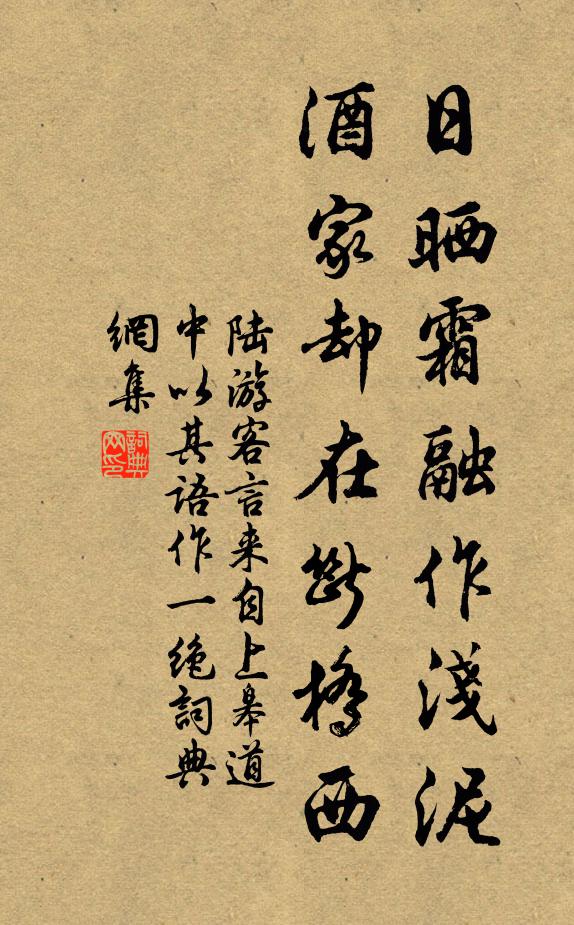 日晒霜融作淺泥
酒家却在斷橋西
陆游客言来自上皋道
中以其语作一绝詞典
網集
詞典網印